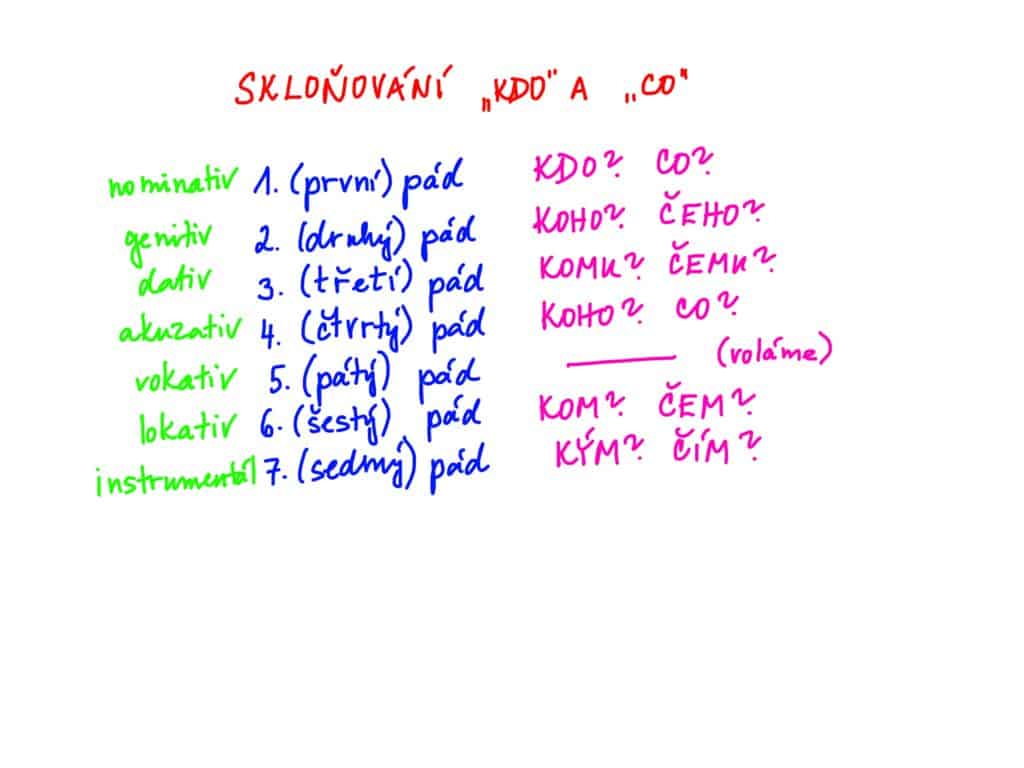 SKLOŇOVÁNÍ „KDO" A „CO"
nominativ 1. (první) pád KDO? CO?
genitiv 2. (druhý) pád KOHO? ČEHO?
dativ 3. (třetí) pád KOMU? ČEMU?
akuzativ 4. (čtvrtý) pád KOHO? CO?
vokativ 5. (pátý) pád ——— (voláme)
lokativ 6. (šestý) pád KOM? ČEM?
instrumentál 7. (sedmý) pád KÝM? ČÍM?